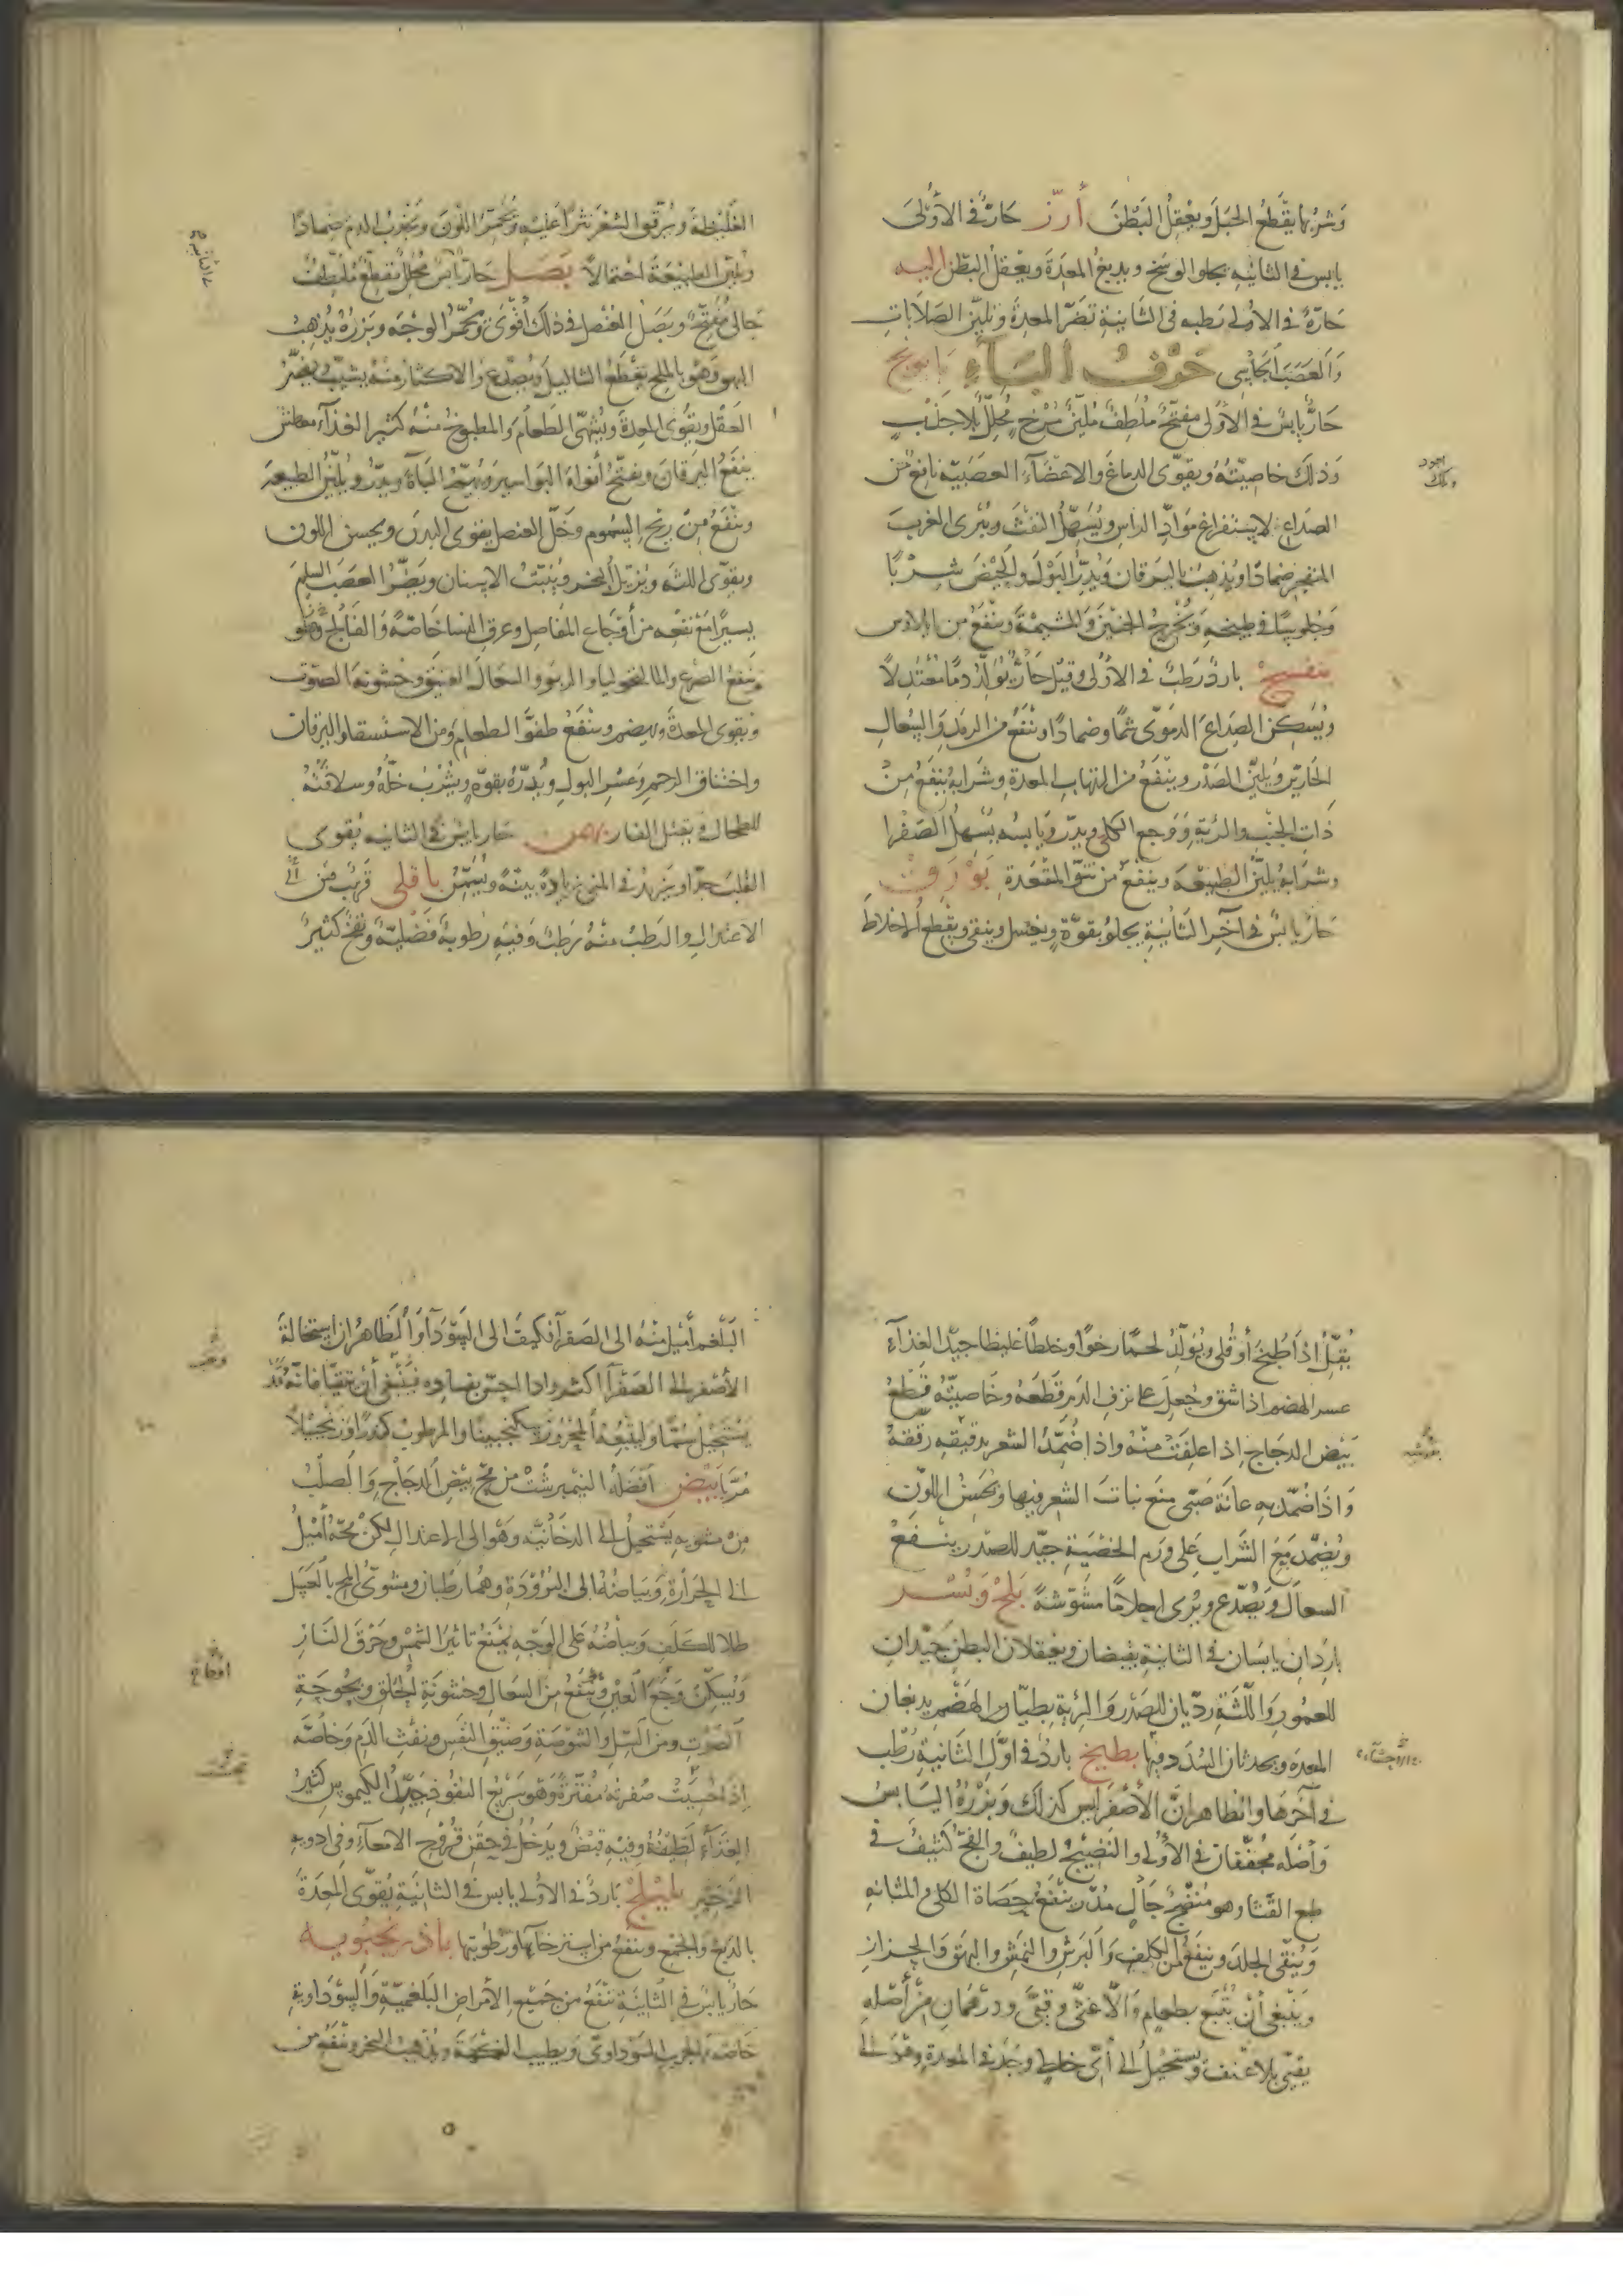 وَشربُها يقطع الحبَل ويعقل البَطنَ أرز حَارّ في الأولى
يابس في الثانيه يجلوا الوسَخ ويدبغ المعدَة ويعقل البَطن اليه
حَارّة في الأولى رَطبه في الثانيةِ تضرّ المعدةَ وتليّن الصَلاباتِ
وَالعَصَبَ الجاسِى حَرفُ البَآءِ بابونج
حَارّ يابسٌ في الأولى مفتحٌ مُلطفٌ مُليّن مُرْخ محلّل بلا جَذبٍ
وَذلكَ خاصيّتُهُ ويقوّى الدماغَ والأعضآءَ العصَبيّة نافع من
الصدَاع لاستفراغ مَوَادّ الرأسِ ويُسَهّلُ النفثَ ويُبرى الغربَ
المنفجر ضمادًا ويُذهِبُ باليَرقان وَيُدِرّ البَوْلَ وَالحَيْضَ شربًا
وَجلوسًا في طبيخهِ وَيُخرِجُ الجنينَ وَالمَشيمَةَ وينفعُ من ايلاوس
بنفسج باردٌ رَطبٌ في الأولى وقيلَ حَارّ يُولّدُ دمًا معتدلًا
ويُسَكن الصدَاعَ الدموىّ شمًّا وضمادًا وينفعُ من الرمَدِ وَالسُعالِ
الحَارّين ويُليّن الصَدْرَ وينفَعُ من التهابِ المعدةِ وشرَابهُ ينفَعُ مِنْ
ذاتِ الجنْبِ والرّئةِ وَوَجعِ الكلى ويدرّ ويابسُه يُسهلُ الصَفرا
وشرَابهُ يليّنُ الطبيعَه وينفعُ من نتوّ المقعَدة بَوْرَق
حَارّ يابسٌ في آخرِ الثانيةِ يجلو بقوّةٍ ويغسل وينقى ويقطع الاخلاطَ
اجود
الغَليظةَ ويُرقّق الشعْرَ نثرًا عَليهِ ويُحمّرُ اللّونَ وَيَجْذبُ الدم ضمادًا
ويُليّن الطبيعَةَ احتمالًا بَصَل حَارّ يابسٌ محلّلٌ مُقطّعٌ مُلطّفٌ
جالى مُفتّحٌ وبَصَلُ العُنصل في ذلكَ أقوى ويُحمّرُ الوجْهَ وبَزرُهُ يُذهِبُ
البهق وَهُوَ بالملحِ يَقطَع الثاليل ويُصدّع والاكثار منهُ يسبّت ويضرّ
العَقْلَ ويُقوّى المعِدةَ ويُشهّى الطعَامَ وَالمطبوخ منْهُ كثيرُ الغذآءِ معطش
ينفَعُ اليَرقانَ ويفتحُ أفواهَ البَواسيرِ ويُهيّجُ البَآهَ ويدرّ ويُليّن الطبيعَه
وينفَعُ مِنْ ريْحِ السمُوم وَخَلّ العنصل يقوّى البدَن ويحسن اللون
ويقوّى اللثه ويُزيل البخرَ ويُثبّتُ الاسنان ويَضُرُّ العَصَبَ السليمَ
يسيرًا مَع نفعِه من أوجَاع المفَاصِلِ وعرقِ النسا خاصّةً وَالفَالج
وينفع الصرَع والمالنخوليا والربوَ والسعَالَ العتيقَ وخشونةَ الصَوت
ويقوى المعدةَ ويهضم وينفَعُ طفوَّ الطعام ومن الاستسقاء واليرقان
واختناق الرحمِ وَعسْرِ البولِ ويُدرّهُ بقوّةٍ ويُشْرَبُ خلّهُ وسلاقتُهُ
للطحالِ ويقتل الفار بهمن حَار يابسٌ في الثانيه يقوى
القلبَ جدًّا ويزيدُ في المنى زيادةً بينةً ويُسَمّنُ باقلى قريبٌ من
الاعتدالِ والرطبُ منْهُ رَطبٌ وفيهِ رطوبةٌ فَضليّةٌ ونفخٌ كثيرٌ
يُقِلّ إذا طُبخَ أو قُلى ويُولّدُ لحمًا رخوًا وخلطًا غليظا جيّدُ الغذآءِ
عسر الهضم اذا شق وجُعِلَ على نزف الدَم قَطَعَهُ وخَاصيتُهُ قطعُ
بَيْض الدجَاج إذا علفَتْ منْهُ واذا ضُمّدَ الشعر بدقيقِه رقّقهُ
وَاذَا ضُمّد به عانَة صَبى منَع نبَاتَ الشعرِ فيها ويُحَسّنُ اللونَ
ويُضمّد مَعَ الشرابِ عَلى ورَم الخصْيَةِ جيّد للصَدْر ينفعُ
السعالَ ويُصَدّع ويُرى احلامًا مُشوّشةً بَلحٌ وَبُسْر
بارِدَانِ يابسَان في الثانيةِ يقبضانِ ويعقلان البطن جيدانِ
للعمُورِ وَاللّثَةِ رديان للصَدْرِ وَالرئةِ بطيّا الهَضْمِ يدبغان
المعدَه ويحدثان السُدَد فيها بطيخ باردٌ في اوّلِ الثانية رَطْب
في آخرهَا والظاهر انّ الأصفَر ليس كذلكَ وَبَزْرُهُ اليَابسُ
وَأصْله مُجفّفان في الأولى والنَضيجُ لطيفٌ والفجّ كثيفٌ في
طبع القثاء وهو مُنضجٌ جَالٍ مُدرّ ينفَعُ حصَاةَ الكلى والمثانه
وَيُنقّى الجلدَ وينفَعُ من الكلفِ وَالبَرشِ والنمَشِ والبهَق وَالحزازِ
وَيَنبغى أن يُتْبَعَ بطعامٍ وَالّا غثّى وقيّى ودرهمانِ من أصْلهِ
يقيّى بلا عنفٍ ويستحيلُ الى أىّ خلطٍ وجدَ في المعدةِ وهوَ الى
البَلغم أميل منهُ الى الصَفرآء فكيفَ الى السَوْدَآءِ وَالظاهرُ ان استحالةَ
الأصْفر الى الصَفرآءِ اكثر واذا احسّ بفسادِه فينبغى أن يتقيّا فانّه
يَسْتحيلُ سُمًّا وَليتبعْهُ المحرُورُ سكنجبينًا والمرطوبُ كندرًا وزنجبيلًا
مُرَبًّا بَيْض أفضلهُ النيْمبرشتْ من مُحّ بيْضِ الدجَاجِ وَالصلْبُ
مِن مشويهِ يَسْتحيلُ الى الدخَانيّه وَهُوَ الى الاعتدالِ لكنْ مُحّهُ أمْيلُ
الى الحَرَارةِ وَبيَاضُهُ الى البُرُوْدَةِ وهُما رَطْبانِ ومشوىّ المح بالعَسَل
طلا للكلفِ وبيَاضُهُ على الوَجْهِ يمنعُ تاثيرَ الشمْسِ وحَرْقَ النارِ
ويُسكّنُ وَجَعَ العَيْنِ وينفَعُ مِنَ السعَالِ وخشونَةِ الحَلقِ وبُحُوحَةِ
الصَوتِ ومن السّلِ والشوْصَةِ وَضيْقِ النفَسِ ونفثِ الدَمِ وَخاصّه
إذَا حُسيَتْ صُفرتهُ مُفترَةً وَهُوَ سَريعُ النفُوذِ جَيّدُ الكيموسِ كثيرُ
الغِذآءِ لَطيفُهُ وفيهِ قبضٌ ويَدخُلُ في حقَنِ قُرُوْحِ الامعآءِ وفي ادويهِ
الزحِير بليْلَج بَاردٌ في الأولى يابس في الثانيةِ يُقوّى المعِدَةَ
بالدبغِ وَالجَمْعِ وينفَعُ من استرخآئها ورُطوبتِها باذرنجبويه
حَارّ يابس في الثانيةِ ينفَعُ من جَميْعِ الأمْراضِ البَلغميّةِ وَالسَوْدَاويةِ
خاصّةً الجرَبَ السَوْداوىّ ويطيب النكهَةَ ويُذهِبُ البخر وينفَعُ من